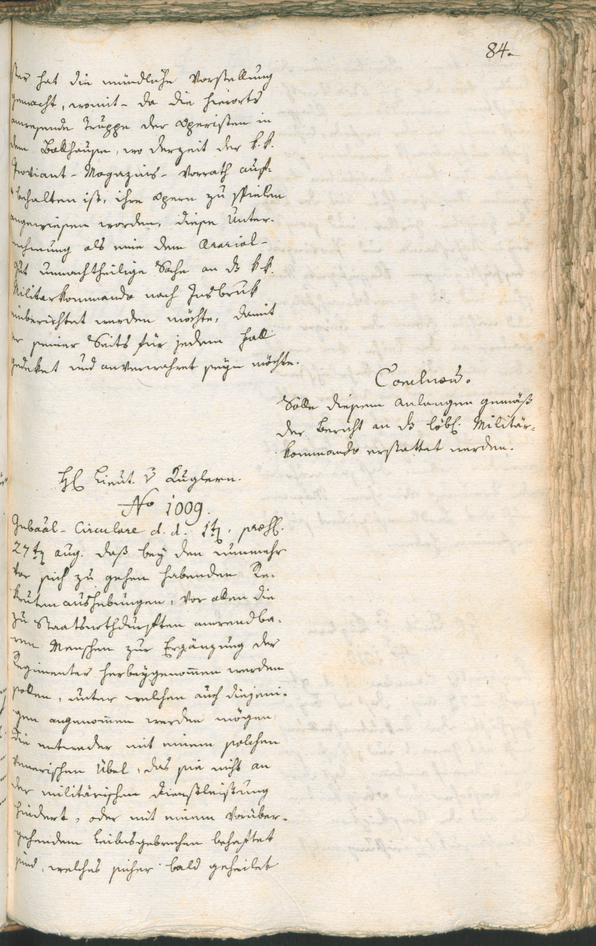 84.
hat die mündliche Vorstellung
gemacht, womit - da die hierorts
anwesende Truppe der Operisten in
dem Bakhause, wo derzeit der k. k.
Proviant-Magazins-Vorrath auf-
behalten ist, ihre Opern zu spielen
angewiesen worden, diese Unter-
nehmung als eine dem Ararial-
Gut unnachtheilige Sache an ds k. k.
Militärkommando nach Insbruk
einberichtet werden möchte, damit
er seiner Seits für jedem Fall
gedeket und anverwahret seyn möchte.
Conclusum.
Solle diesem Anlangen gemäß
der Bericht an ds löbl. Militär-
kommando erstattet werden.
H Lieut. v Kuglern.
No 1009.
Gubäal-Circulare d. d. 1t, praes.
27t Aug. daß bey den nunmehr
vor sich zu gehen habenden Re-
krutenaushebungen, vor allen die
zu Staatsnothdurften anwendba-
ren Menschen zur Ergänzung der
Regimenter herbeygenommen werden
sollen, unter welchen auch diejeni-
gen angenommen werden mögen
die entweder mit einem solchen
venerischen Übel, das sie nicht an
der militärischen Dienstleistung
hindert, oder mit einem vorüber-
gehendem Leibsgebrechen behaftet
sind, welches sicher bald geheilet